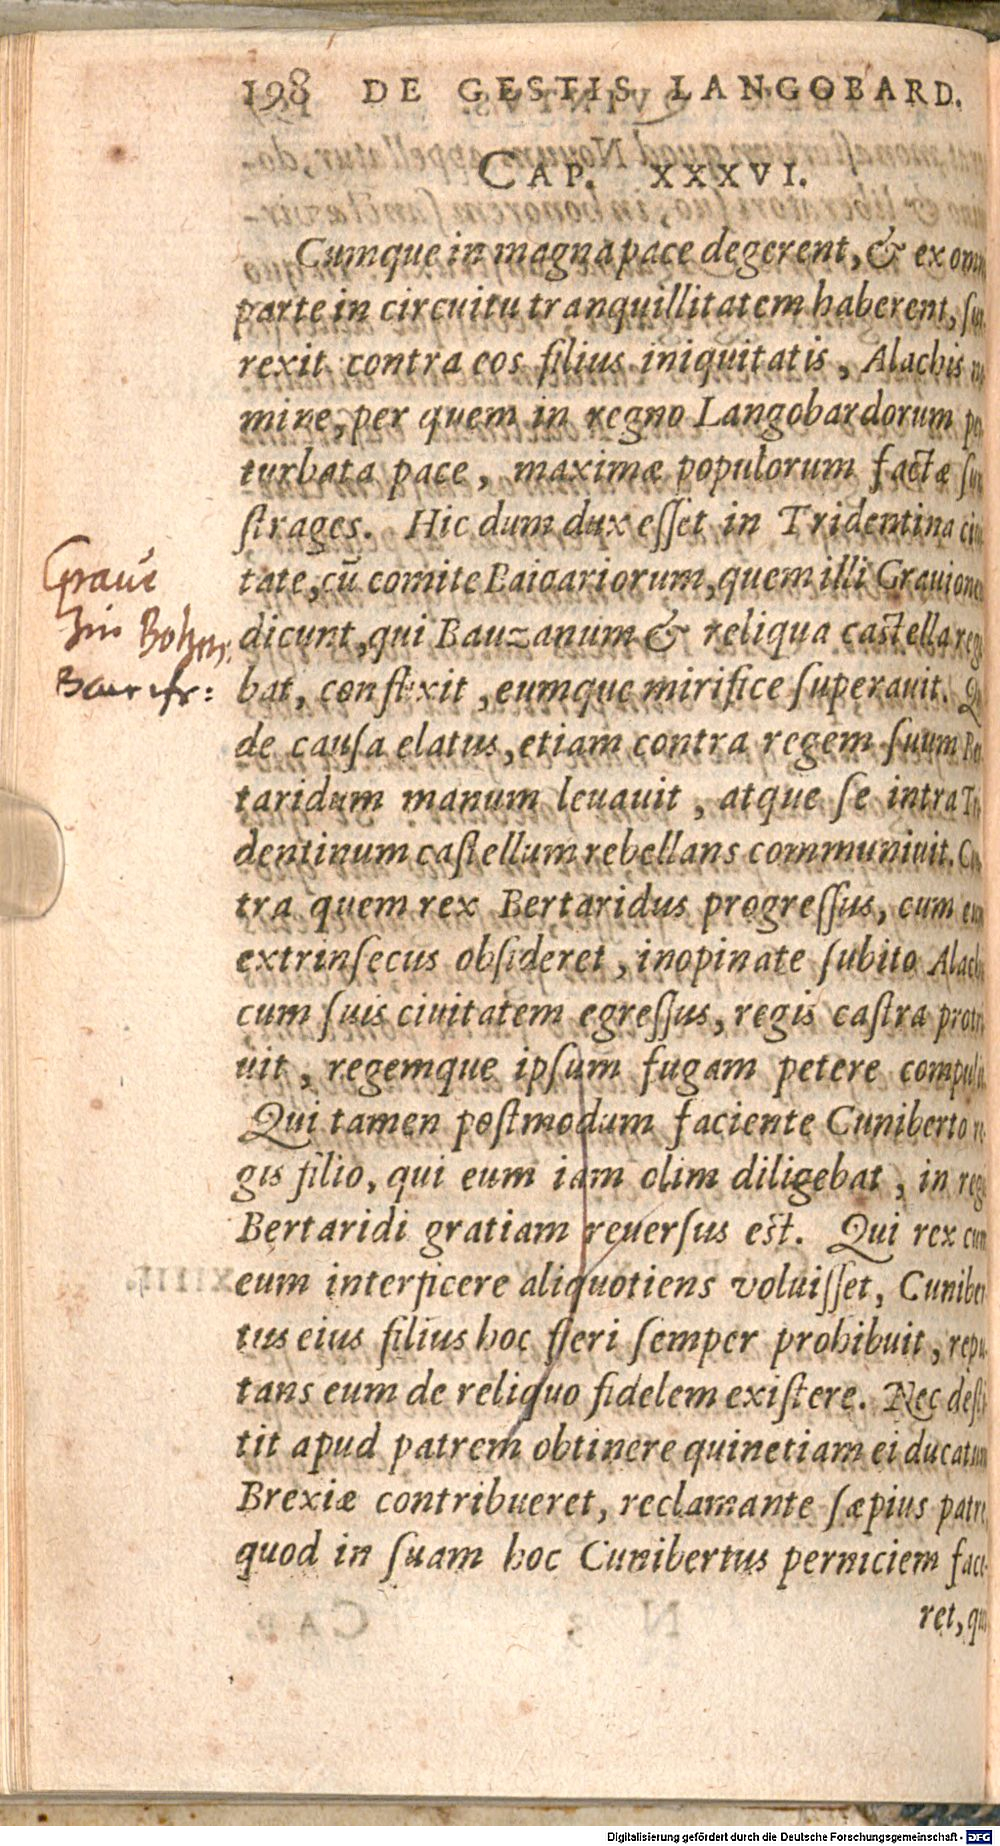 198 DE GESTIS LANGOBARD.
CAP. XXXVI.
Cumque in magna pace degerent, & ex
parte in circuitu tranquillitatem haberent,
rexit contra eos filius iniquitatis, Alachis
mine, per quem in regno Langobardorum
turbata pace, maximæ populorum factæ
ſtrages. Hic dum dux eſſet in Tridentina
tate, cū comite Baioariorum, quem illi Grauionem
dicunt, qui Bauzanum & reliqua castella
bat, conflixit, eumque mirifice ſuperauit.
de cauſa elatus, etiam contra regem ſuum
taridum manum leuauit, atque ſe intra
dentinum caſtellum rebellans communiuit.
tra quem rex Bertaridus progreſſus, cum
extrinſecus obſideret, inopinate ſubito
cum ſuis ciuitatem egreſſus, regis caſtra
uit, regemque ipſum fugam petere
Qui tamen poſtmodum faciente Cuniberto
gis filio, qui eum iam olim diligebat, in
Bertaridi gratiam reuerſus est. Qui rex cum
eum interficere aliquotiens voluiſſet,
tus eius filius hoc fieri ſemper prohibuit,
tans eum de reliquo fidelem exiſtere. Nec
tit apud patrem obtinere quinetiam ei ducatum
Brexiæ contribueret, reclamante ſæpius
quod in ſuam hoc Cunibertus perniciem
ret,
Graue
Bohem
Digitalisierung gefördert durch die Deutsche Forschungsgemeinschaft - DFG